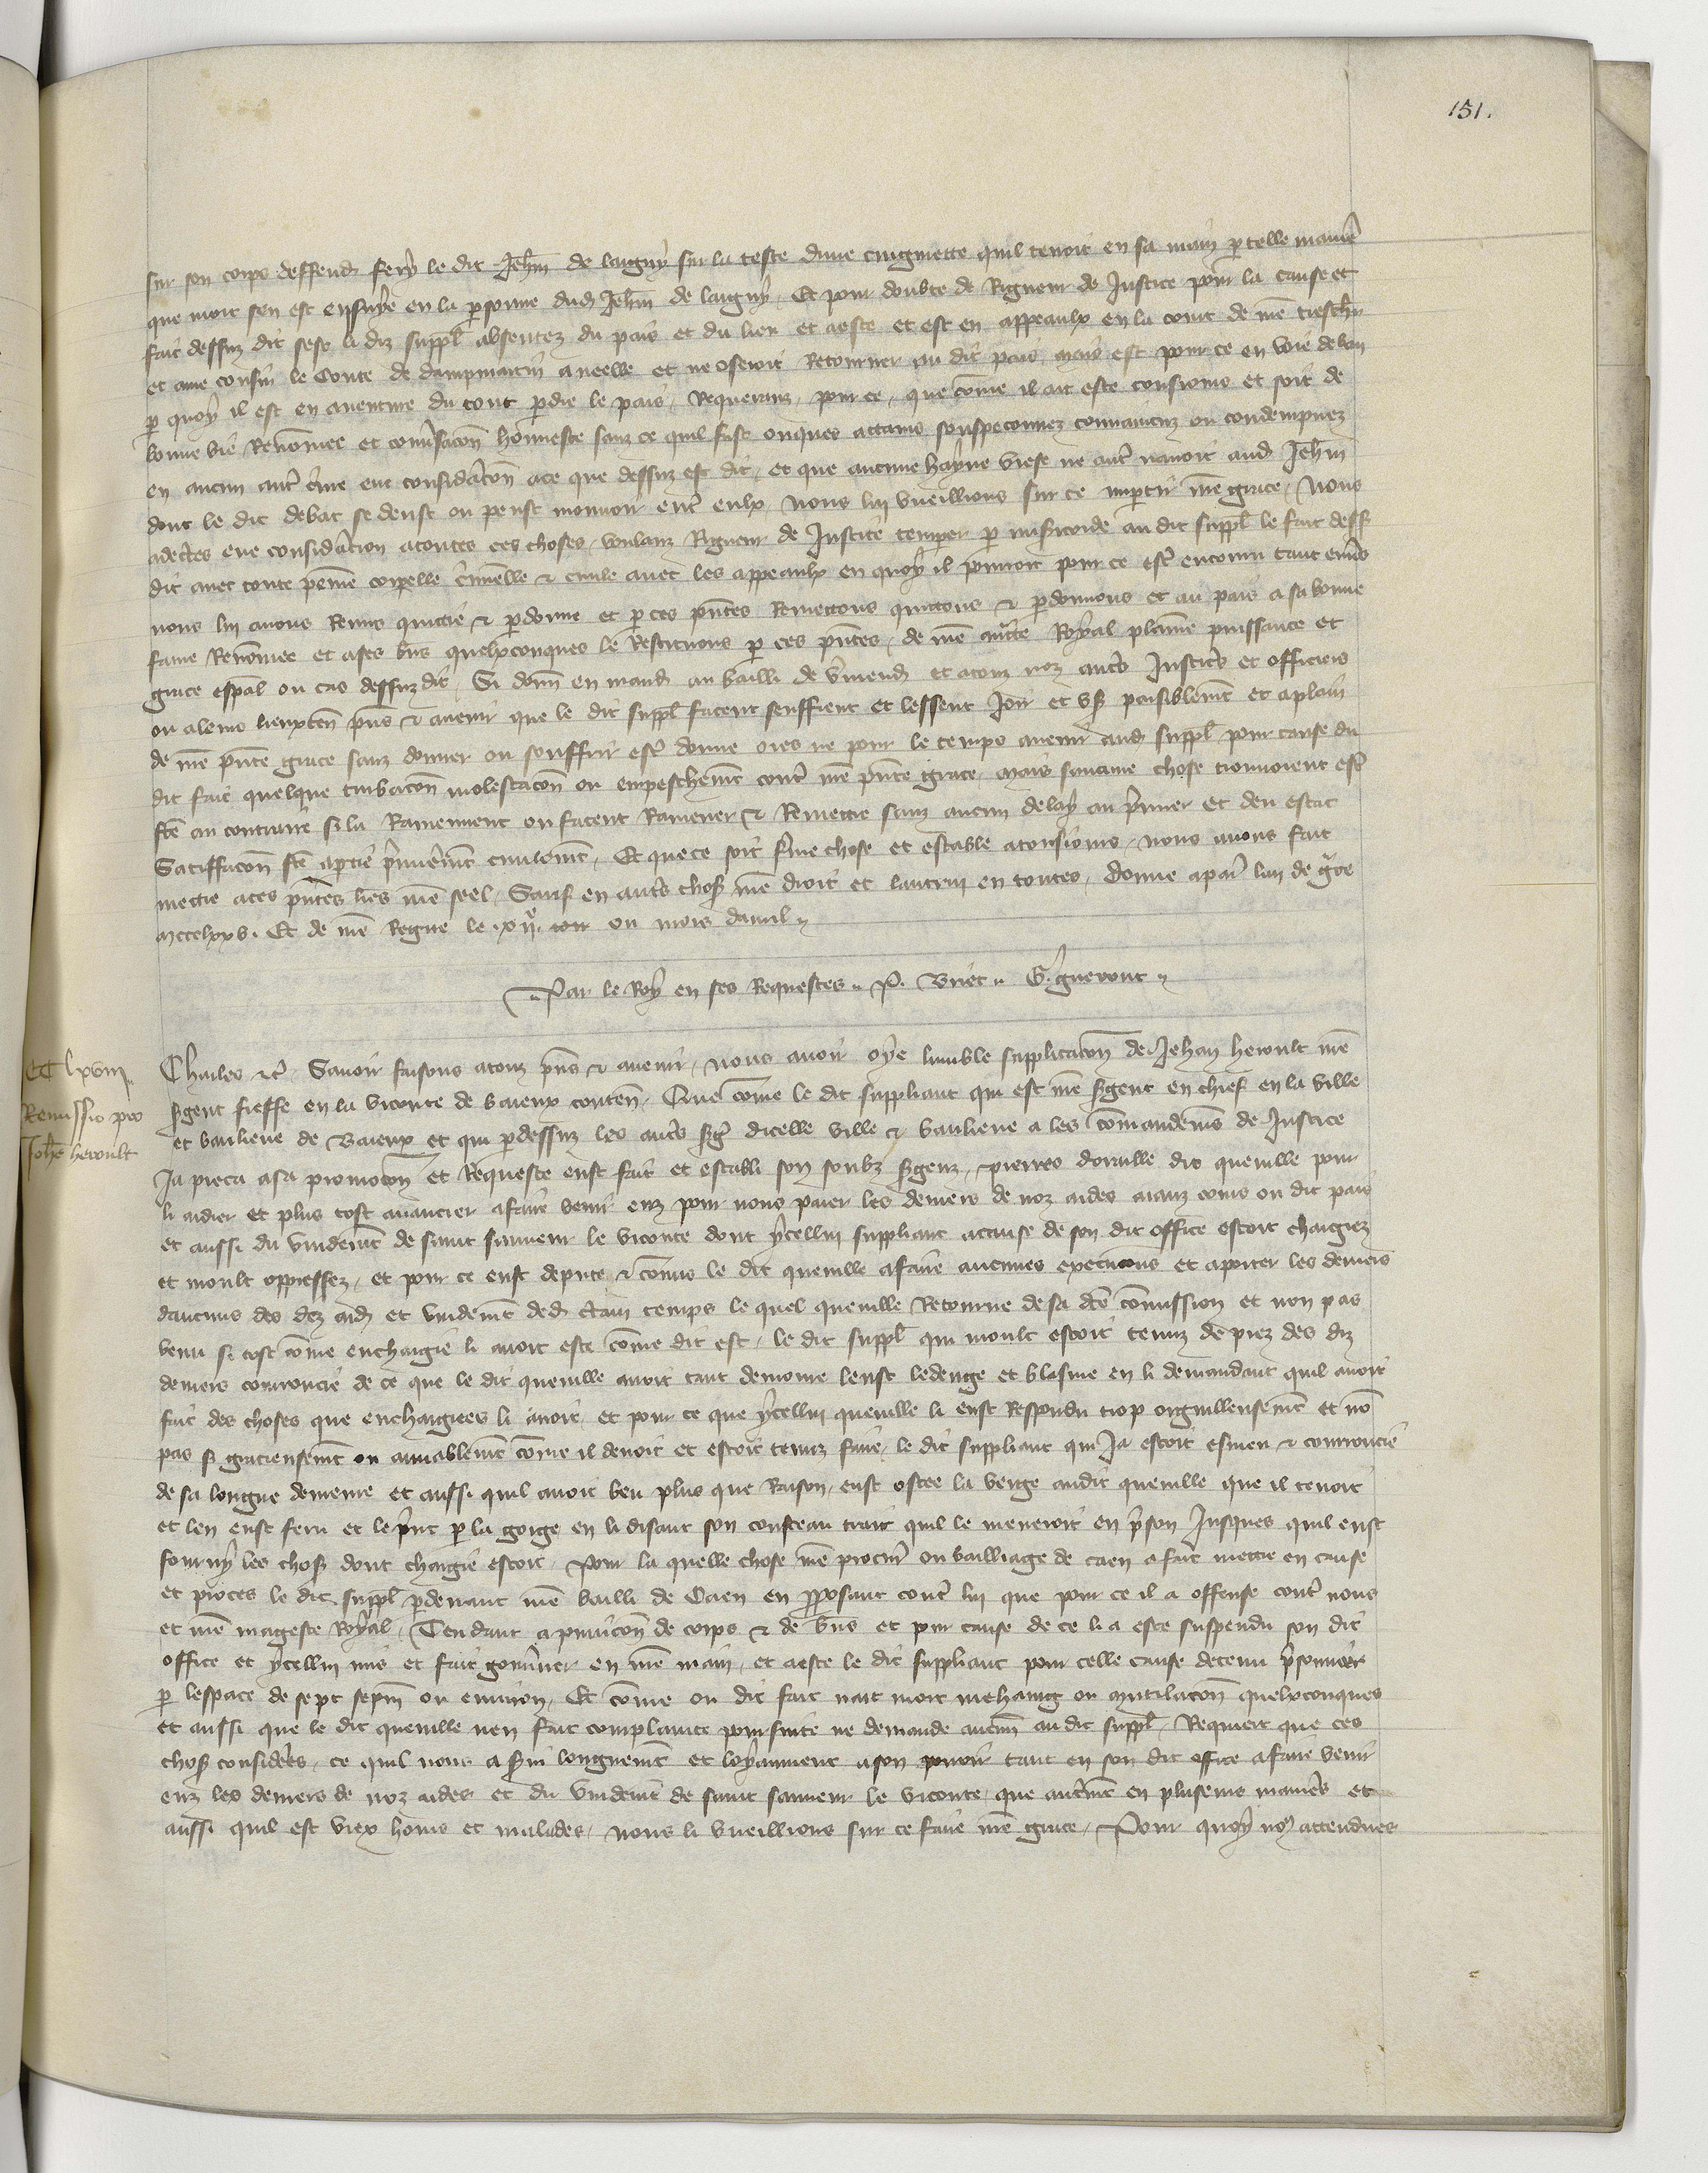 151.
sur son corps deffend fery le dit Jehan de laigny sur la teste dune cuignette quil tenoit en sa main p telle manie
que mort sen est ensuye en la psonne dud Jehan de laigny Et pour doubte de Rigueur de Justice pour la cause et
fait dessuz dit sest li diz suppl absentez du pais et du lieu et aeste et est en appeaulx en la court de nre treschr
et ame cousin le Conte de dampmartin a neelle et ne oseroit Retourner ou dit pais mais est pour ce en voie de ban
p quoy il est en aventure du tout pdre le pais Requerans pour ce que come il ait este tousiours et soit de
bonne vie Renomee et conversacon honneste sanz ce quil fust onques attains souspeconnez convaincuz ou condempnez
en aucun autre crime eue considacon ace que dessuz est dit et que aucune hayne viese ne autre navoit aud Jehan
dont le dit debat se deust ou peust mouvoir entre eulx Nous lui vueillions sur ce impartir nre grace Nous
adectes eue consideration atoutes ces choses voulans Rigueur de Justice temperer p misicorde au dit suppl le fait dess
dit avec toute peine corpelle criminelle & civile avec les appeaulx en quoy il pourroit pour ce estre encouru tant envers
nous lui avons Remis quittie & pdonne et p ces pntes Remettons quittons & pdonnons et au pais a sa bonne
fame Renomee et ases bns quelxconques le Restituons p ces pntes de nre auctte Royal plaine puissance et
grace espal ou cas dessuz dit Si donn en mand au bailli de vmend et atouz noz autres Justicrs et officiers
ou aleurs lieuxten pns & avenir que le dit suppl facent seuffrent et lessent Joir et us paisiblemt et aplain
de nre pnte grace sanz donner ou souffrir estre donne ores ne pour le temps avenir aud suppl pour cause du
dit fait quelque turbacon molestacon ou empeschemt contre nre pnte grace mais saucune chose trouvoient estre
fte au contraire si la Ramennent ou facent Ramener & Remettre sanz aucun delay au primer et deu estat
Satiffacon fte aptie primeremt civilemt Et que ce soit ferme chose et estable atousiours nous avons fait
mettre aces pntes lres nre seel Sauf en autres chos nre droit et lautruy en toutes donne aparis lan de grce
mccclxxv. Et de nre Regne le xije tour ou mois davril
Par le Roy en ses Requestes P. Briet G. guerout
CClxviij
Remissio pro
Johe heroult
Charles &c Savoir faisons atouz pns & avenir nous avoir oye lumble supplicacon de Jehan heroult nre
sgent fieffe en la viconte de baieux conten Que come le dit suppliant qui est nre sgent en chief en la ville
et banlieue de Baieux et qui pdessuz les autres sgens dicelle ville & banlieue a les comandems de Justice
Ja pieca asa promocon et Requeste eust fait et establi son soubz sgent pierres doiville dit quenville pour
li aidier et plus tost avancier afaire venir ens pour nous paier les deniers de noz aides aianz cours ou dit pais
et aussi du vuidemt de saint sauveur le viconte dont ycellui suppliant acause de son dit office estoit chargiez
et moult oppressez et pour ce eust depute & comis le dit quenville afaire aucunes execucions et aporter les deniers
daucuns des dez aid et vuidemt ded ctain temps le quel quenville Retourne de sa dte comission et non pas
venu si tost come enchargie li avoit este come dit est le dit suppl qui moult estoit tenuz de piez des diz
deniers courroucie de ce que le dit quenville avoit tant demoure leust ledenge et blasme en li demandant quil avoit
fait des choses que enchargees li avoit et pour ce que ycellui quenville li eust Respondu trop orguilleusemt et non
pas si gracieusemt ou amiablemt come il devoit et estoit tenuz faire le dit suppliant qui Ja estoit esmeu & courroucie
de sa longue demeure et aussi quil avoit beu plus que Raison eust ostee la verge audit quenville que il tenoit
et len eust feru et le print p la gorge en li disant son cousteau trait quil le menroit en prison Jusques quil eust
fourny les chos dont chargie estoit Pour la quelle chose nre procur ou bailliage de caen a fait mettre en cause
et proces le dit suppl pdevant nre bailli de Caen en pposant contre lui que pour ce il a offense contre nous
et nre mageste Royal Tendant a punicon de corps & de bns et pour cause de ce li a este suspendu son dit
office et ycellui mis et fait gouverner en nre main et aeste le dit suppliant pour celle cause detenu prisonnier
p lespace de sept sepm ou environ Et come ou dit fait nait mort mehaing ou mutilacon quelxconques
et aussi que le dit quenville nen fait complainte poursuite ne demande aucun au dit suppl Requiert que ces
chos considers ce quil nous a svi longuemt et loyaument a son povoir tant en son dit office afaire venir
ens les deniers de noz aides et du vuidemt de saint sauveur le viconte que autremt en pluseurs manieres et
aussi quil est viex homs et malades nous li vueillions sur ce faire nre grace Pour quoy no attendues